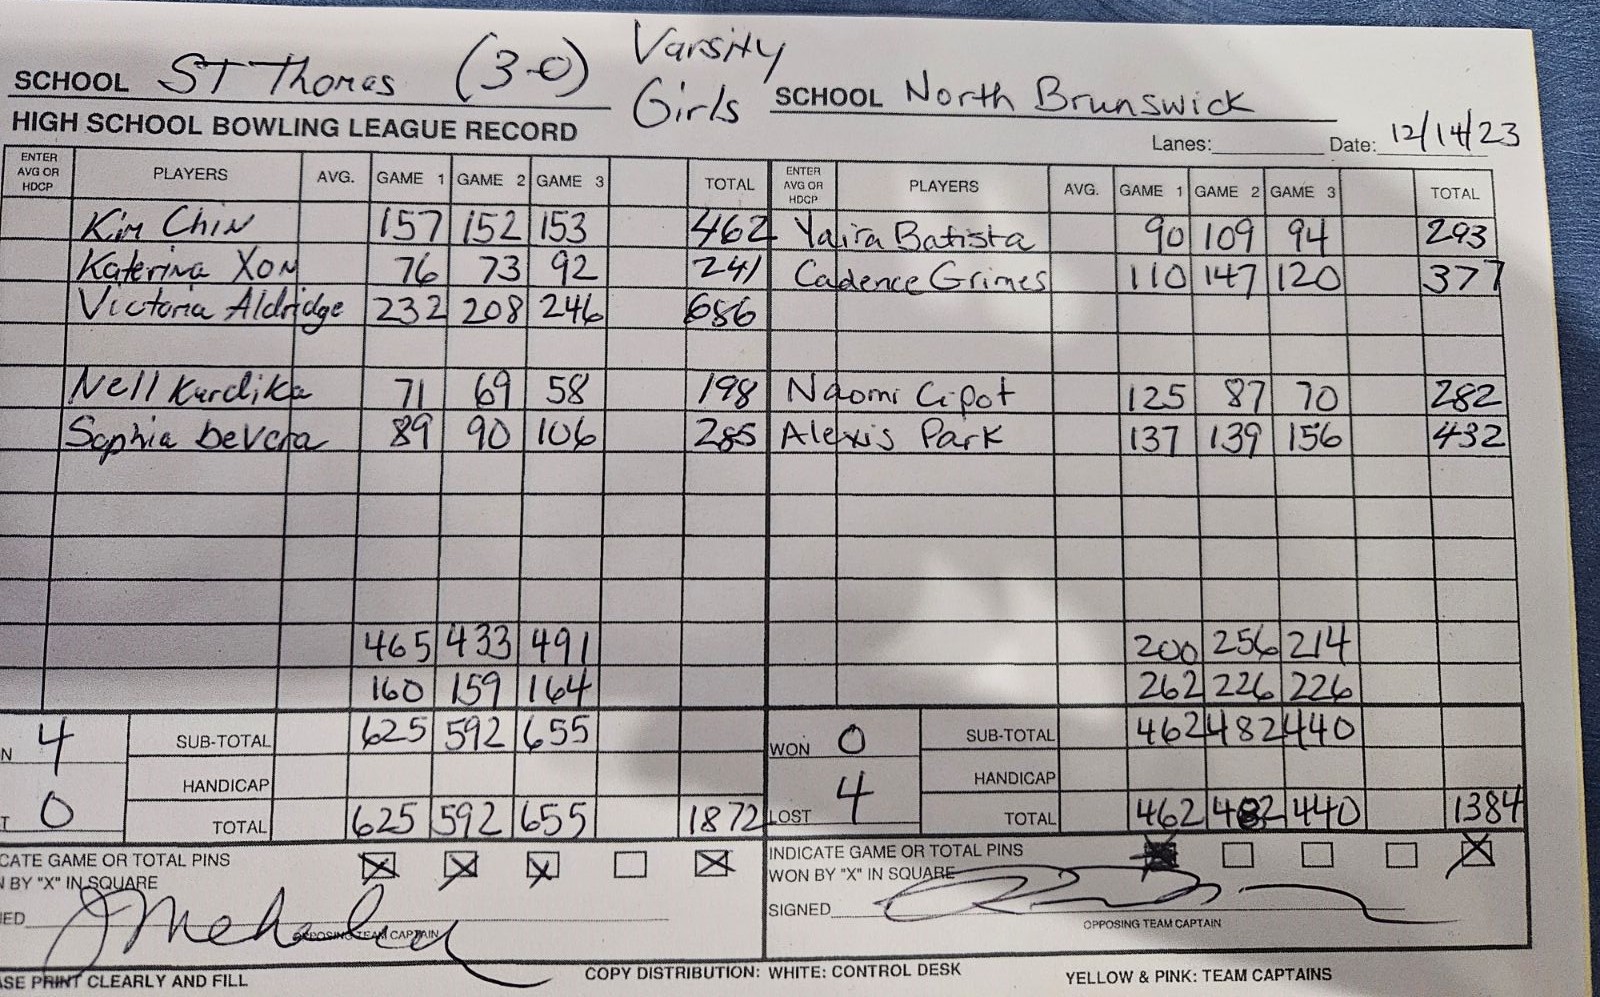 SCHOOL ST Thomas (3-0) Varsity Girls SCHOOL North Brunswick
HIGH SCHOOL BOWLING LEAGUE RECORD Lanes: Date: 12/14/23
ENTER AVG OR HDCP PLAYERS AVG. GAME 1 GAME 2 GAME 3 TOTAL ENTER AVG OR HDCP PLAYERS AVG. GAME 1 GAME 2 GAME 3 TOTAL
Kim Chin 157 152 153 462 Yaira Batista 90 109 94 293
Katerina Xon 76 73 92 241 Cadence Grimes 110 147 120 377
Victoria Aldridge 232 208 246 686
Nell Kurdika 71 69 58 198 Naomi Cipot 125 87 70 282
Sophia DeVera 89 90 106 285 Alexis Park 137 139 156 432
465 433 491 200 256 214
160 159 164 262 226 226
N 4 SUB-TOTAL 625 592 655 WON 0 SUB-TOTAL 462 482 440
HANDICAP HANDICAP
T 0 TOTAL 625 592 655 1872 LOST 4 TOTAL 462 482 440 1384
CATE GAME OR TOTAL PINS INDICATE GAME OR TOTAL PINS
BY "X" IN SQUARE WON BY "X" IN SQUARE
ED SIGNED
OPPOSING TEAM CAPTAIN OPPOSING TEAM CAPTAIN
ASE PRINT CLEARLY AND FILL COPY DISTRIBUTION: WHITE: CONTROL DESK YELLOW & PINK: TEAM CAPTAINS